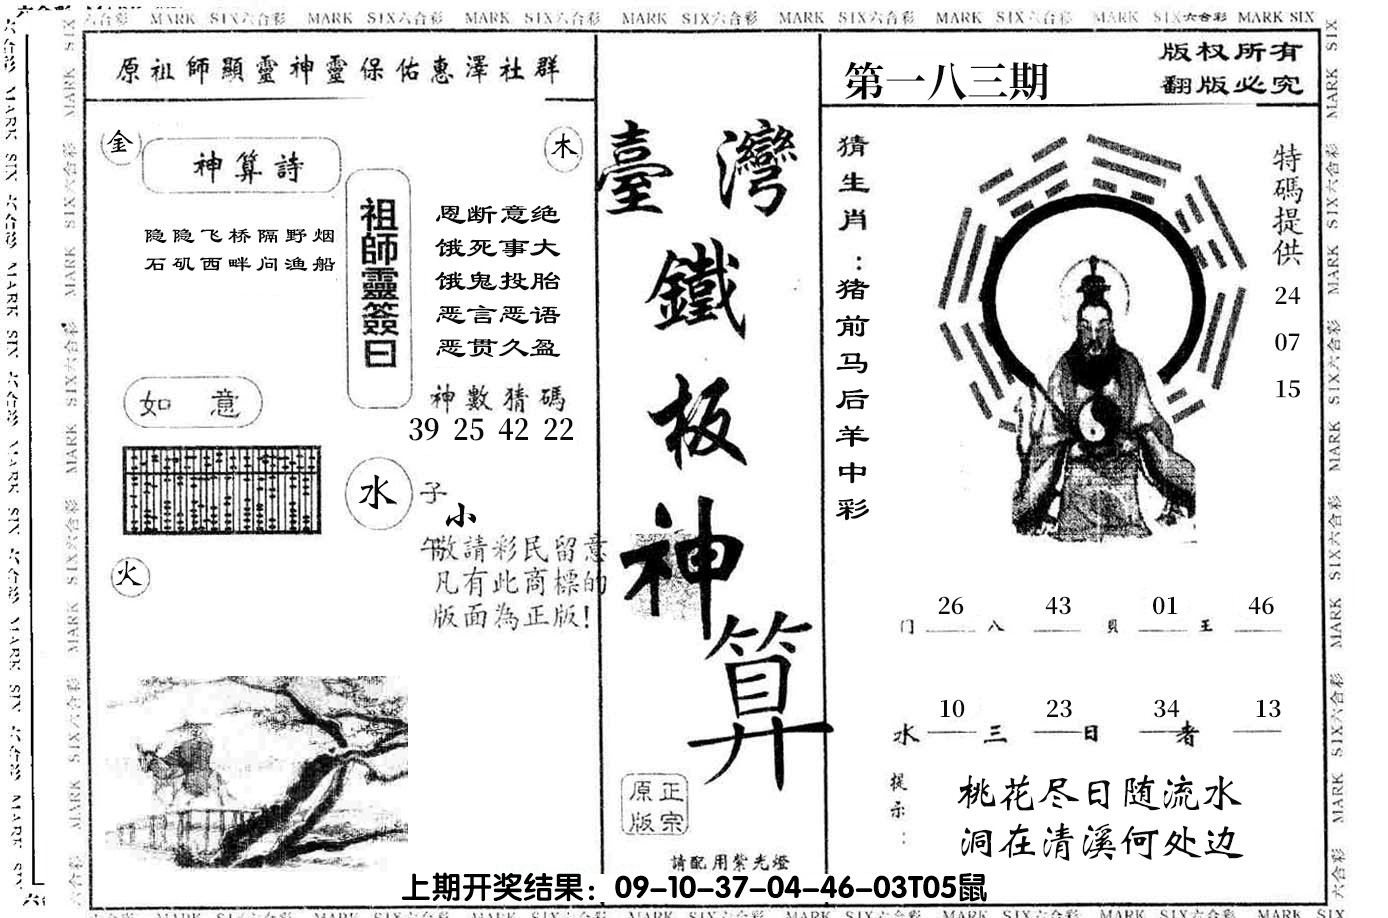 六合彩 MARK SIX六合彩 MARK SIX六合彩 MARK SIX六合彩 MARK SIX六合彩 MARK SIX六合彩 MARK SIX六合彩 MARK SIX六合彩 MARK SIX
原祖師顯靈神靈保佑惠澤社群
金
神算詩
木
隐隐飞桥隔野烟
石矶西畔问渔船
祖師靈簽曰
恩断意绝
饿死事大
饿鬼投胎
恶言恶语
恶贯久盈
神數猜碼
39 25 42 22
如 意
水
子
小
午
敬請彩民留意
凡有此商標的
版面為正版!
火
臺灣
鐵
板
神
算
原正
版宗
請配用紫光燈
第一八三期
版权所有
翻版必究
猜生肖：猪前马后羊中彩
特碼提供
24
07
15
26 43 01 46
门 八 貝 王
10 23 34 13
水 三 日 者
提示：
桃花尽日随流水
洞在清溪何处边
上期开奖结果：09-10-37-04-46-03T05鼠